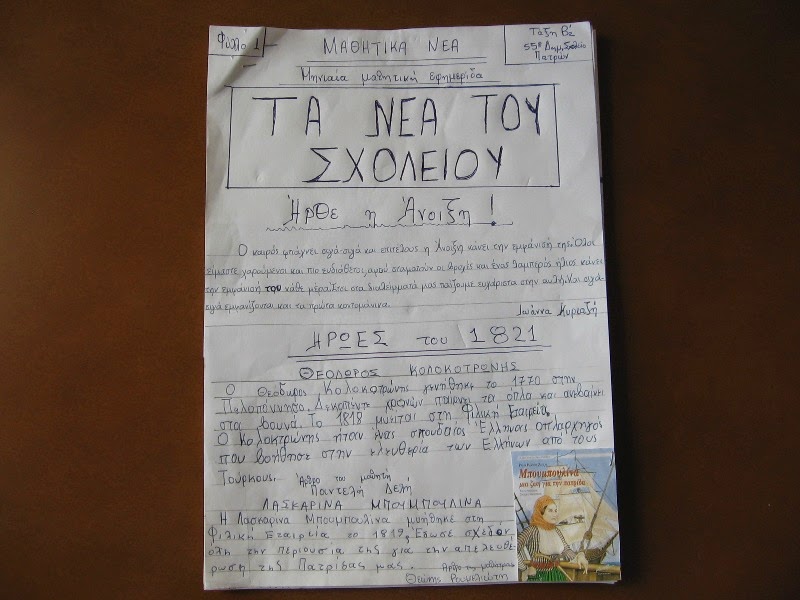 Φύλλο 1
ΜΑΘΗΤΙΚΑ ΝΕΑ
Τάξη Β2
55ο Δημ. Σχολείο
Πατρών
Μηνιαία μαθητική εφημερίδα
ΤΑ ΝΕΑ ΤΟΥ
ΣΧΟΛΕΙΟΥ
Ήρθε η Άνοιξη!
Ο καιρός φτιάχνει σιγά-σιγά και επιτέλους η Άνοιξη κάνει την εμφάνισή της. Όλοι
είμαστε χαρούμενοι και πιο ευδιάθετοι, αφού σταματούν οι βροχές και ένας λαμπερός ήλιος κάνει
την εμφάνισή του κάθε μέρα. Έτσι στα διαλείμματά μας παίζουμε ευχάριστα στην αυλή. Και σιγά-
σιγά εμφανίζονται και τα πρώτα κοντομάνικα.
Ιωάννα
ΗΡΩΕΣ του 1821
ΘΕΟΔΩΡΟΣ ΚΟΛΟΚΟΤΡΩΝΗΣ
Ο Θεόδωρος Κολοκοτρώνης γεννήθηκε το 1770 στην
Πελοπόννησο. Δεκαπέντε χρονών παίρνει τα όπλα και ανεβαίνει
στα βουνά. Το 1818 μυείται στη Φιλική Εταιρεία.
Ο Κολοκτρώνης ήταν ένας σπουδαίος Έλληνας οπλαρχηγός
που βοήθησε στην ελευθερία των Ελλήνων από τους
Τούρκους. Άρθρο του μαθητή
Παντελή Δελή
ΛΑΣΚΑΡΙΝΑ ΜΠΟΥΜΠΟΥΛΙΝΑ
Η Λασκαρινα Μπουμπολίνα μυήθηκε στη
Φιλική Εταιρεία το 1819. Έδωσε σχεδόν
όλη την περιουσία της για την απελευθέ-
ρωση της Πατρίδας μας. Άρθρο της μαθήτριας
Θεώνης
Μπουμπουλίνα
μια ζωή για την πατρίδα